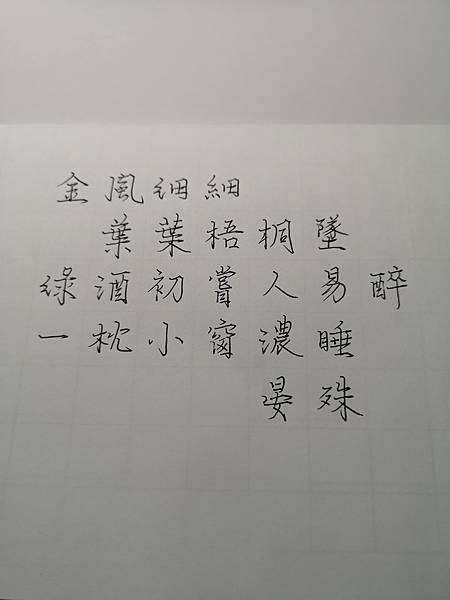 金風細細
葉葉梧桐墜
綠酒初嘗人易醉
一枕小窗濃睡
晏殊